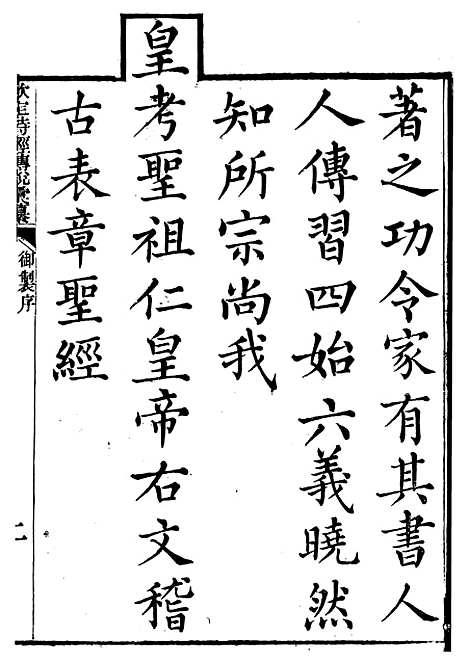 著之功令家有其書人
人傳習四始六義曉然
知所宗尚我
皇考聖祖仁皇帝右文稽
古表章聖經
欽定詩經傳說彙纂
御製序
二